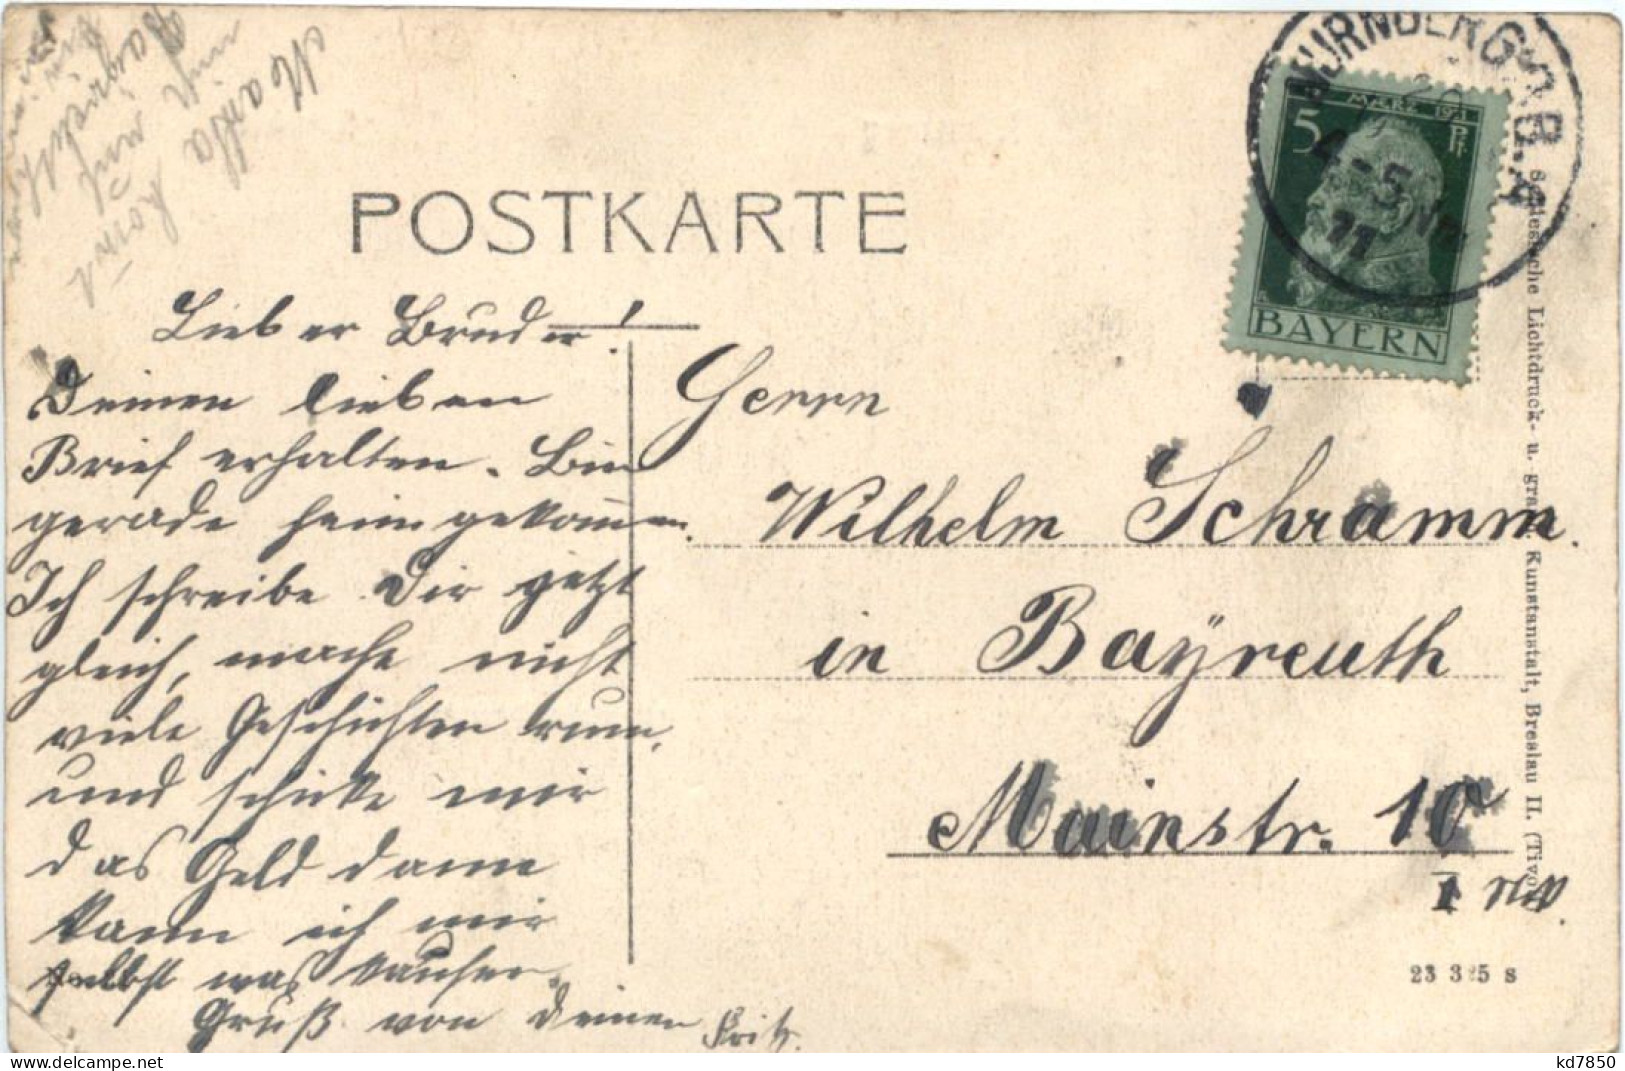 POSTKARTE
Lieber Bruder!
Deinen lieben
Brief erhalten. Bin
gerade heimgekommen.
Ich schreibe Dir jetzt
gleich, mache nicht
viele Geschichten rum,
und schicke mir
das Geld dann
kann ich mir
selbst was kaufen.
Gruß von Deinem Fritz.
NÜRNBERG 2 B.P.
4-5 Nm.
11
MÄRZ 1911
5 Pf
BAYERN
Herrn
Wilhelm Schramm.
in Bayreuth
Mainstr. 10
I
Schlesische Lichtdruck- u. graph. Kunstanstalt, Breslau II. (Tivoli)
23 325 s
kd7850